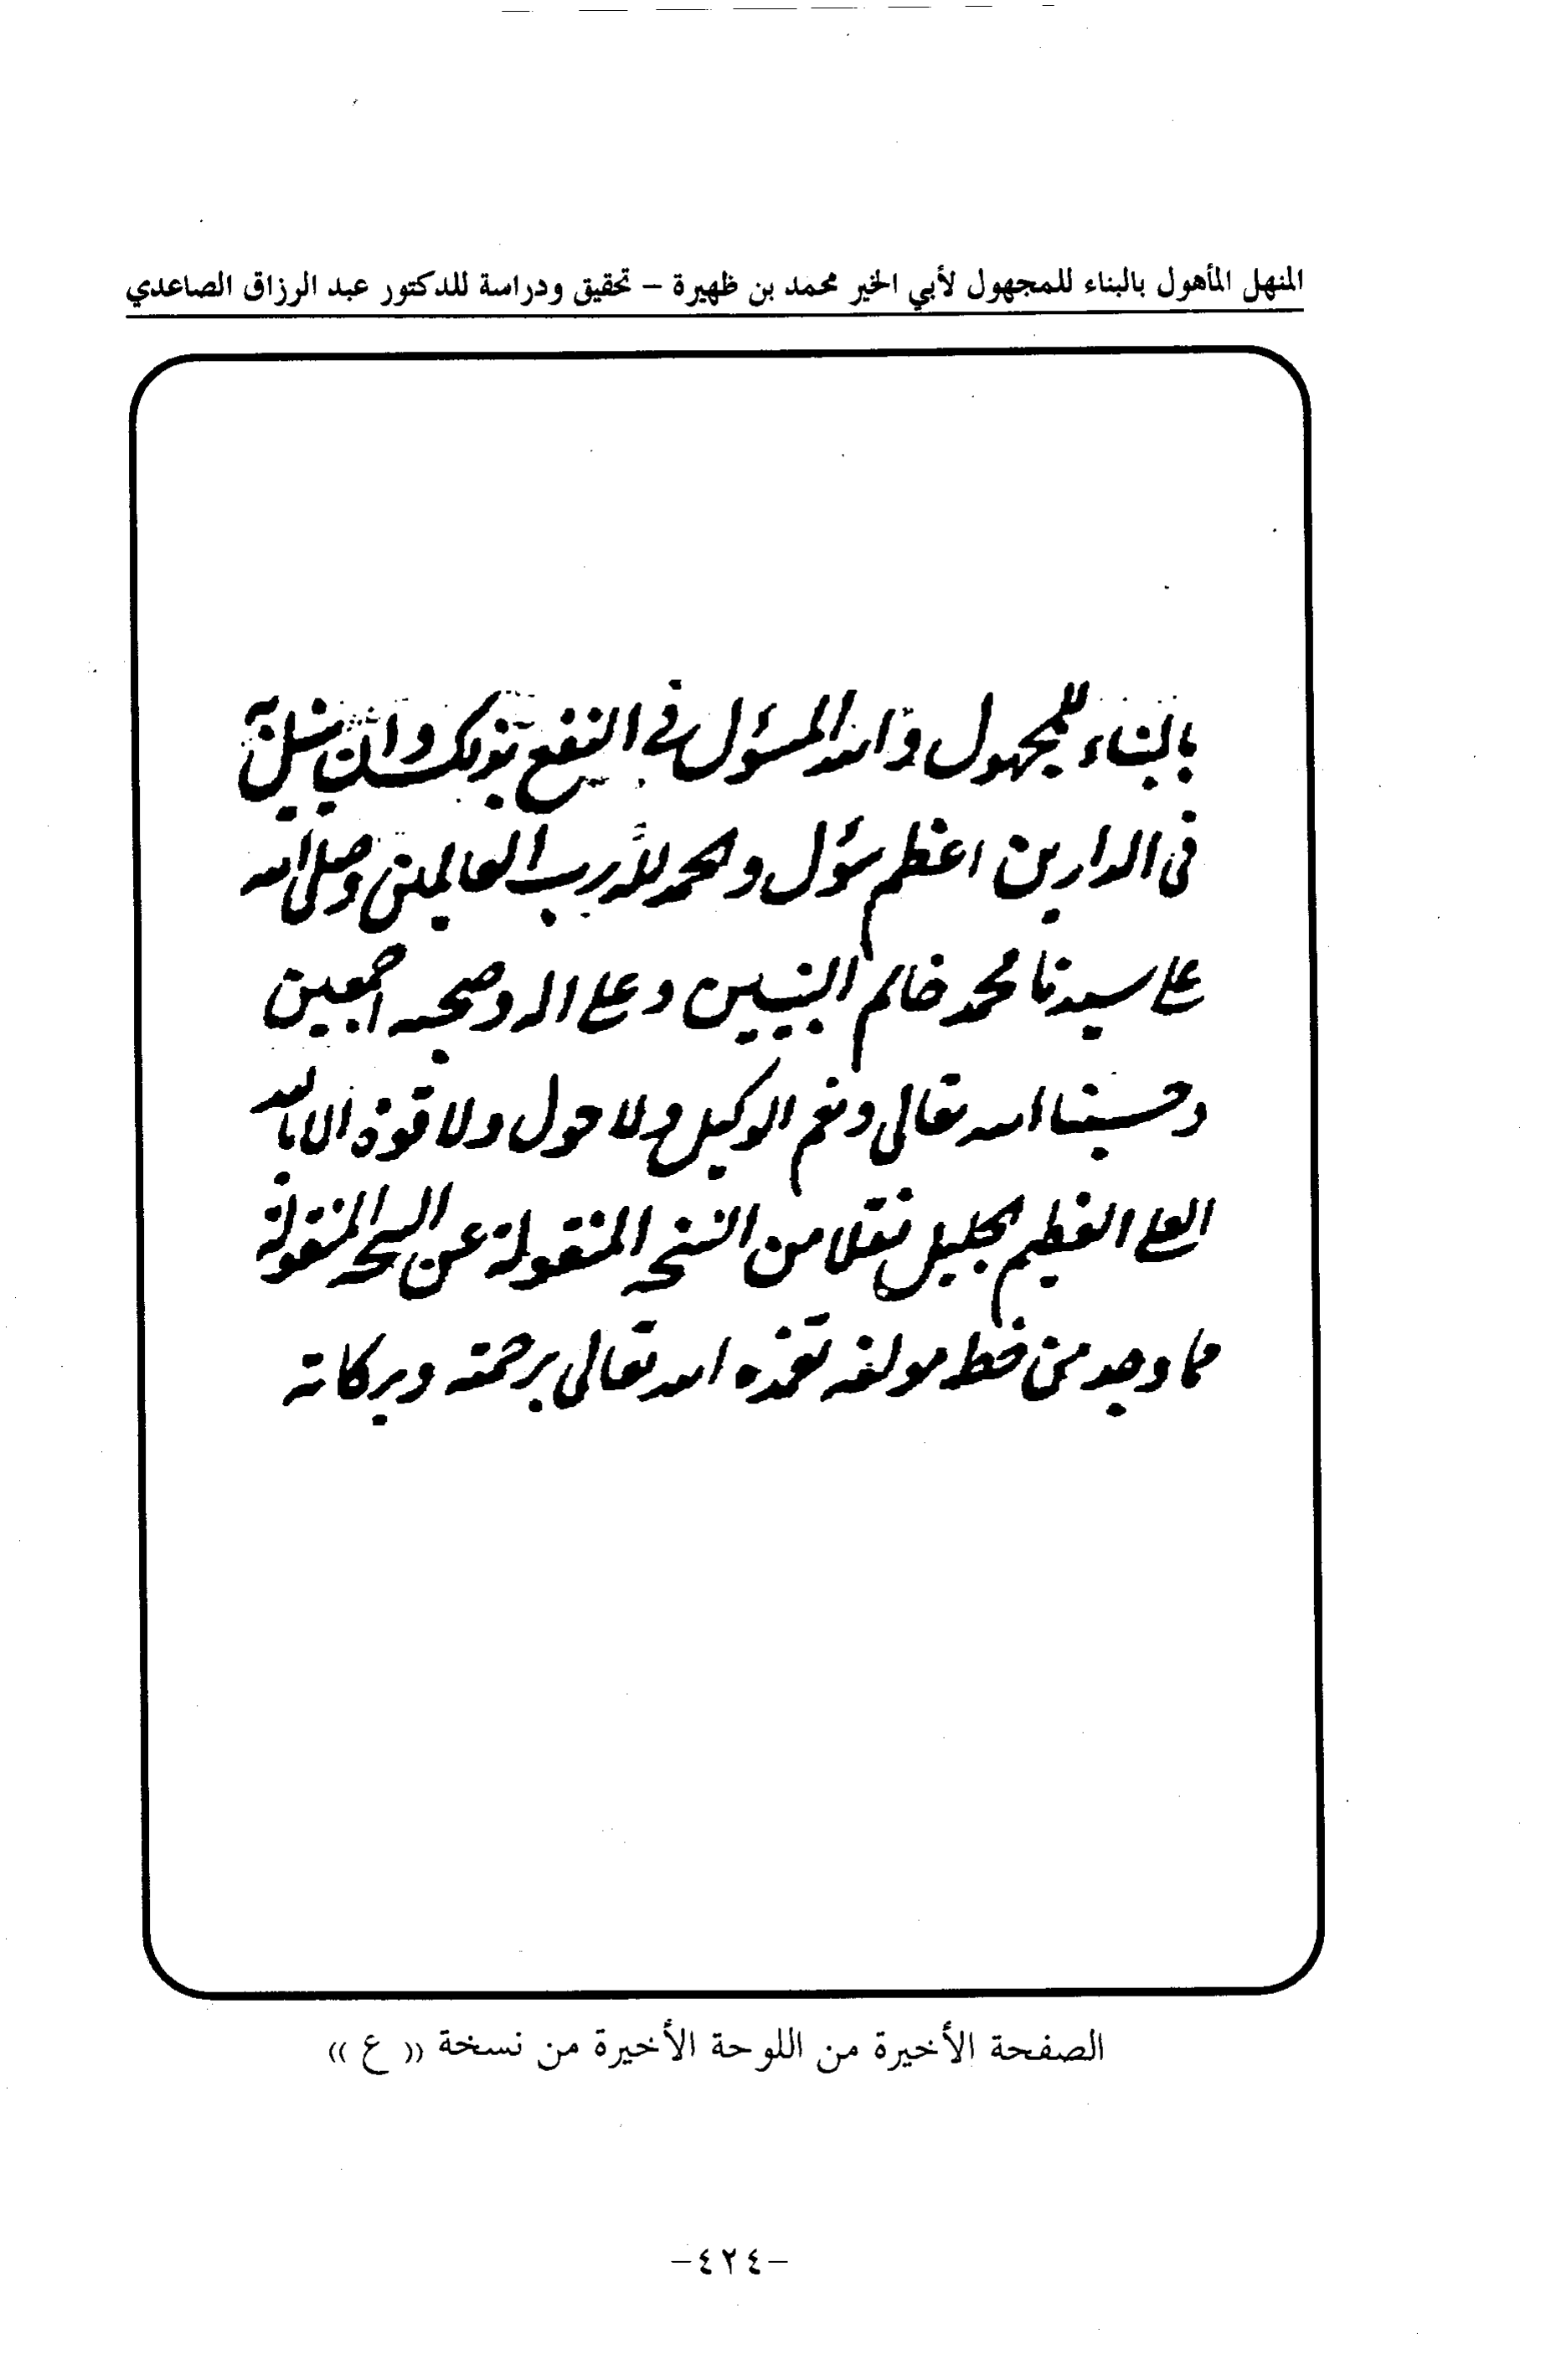 المنهل المأهول بالبناء للمجهول لأبي الخير محمد بن ظهيرة – تحقيق ودراسة للدكتور عبد الرزاق الصاعدي
بالبناء للمجهول والله المسؤل في النفع بذلك وان
في الدارين اعظم سؤل والحمد لله رب العالمين وصلى الله
على سيدنا محمد خاتم النبيين وعلى اله وصحبه اجمعين
وحسبنا الله تعالى ونعم الوكيل ولا حول ولا قوة الا بالله
العلي العظيم الجليل نقلا من النسخة المنقولة عن النسخة المنقولة
مما وجد من خط مولفه تغمده الله تعالى برحمته وبركاته
الصفحة الأخيرة من اللوحة الأخيرة من نسخة (( ع ))
–٤٢٤–